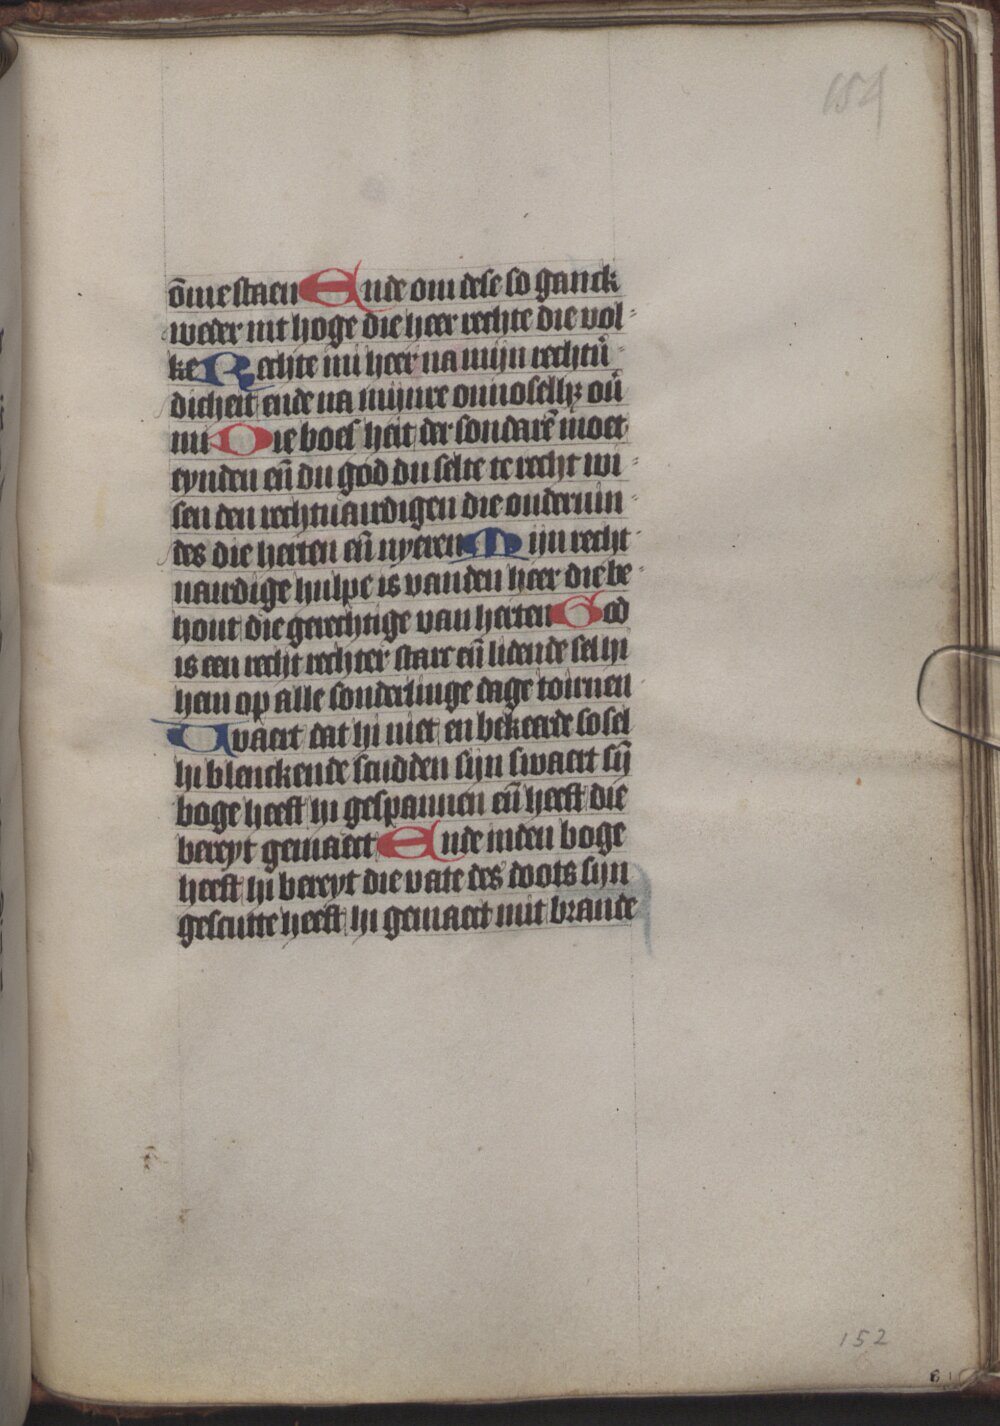 154
ōmestaen Ende om dese so ganck
weder int hoge die heer rechte die vol-
ke Rechte mi heer na mijn rechtū
dicheit ende na mijnre onnoselhꝫ oū
mi Die boesheit der sondarē moet
eynden eñ du god du selte te recht wi-
sen den rechtuaerdigen die onderuin-
des die herten eñ nyeren Mijn recht-
uaerdige hulpe is vanden heer die be-
hout die gerechtige van herten God
is een recht rechter starc eñ lidende sel hi
hem op alle sonderlinge dage toirnen
Tvaert dat hi niet en bekeerde so sel
hi blenckende scudden sijn swaert sij̄
boge heeft hi gespannen eñ heeft die
bereyt gemaect Ende inden boge
heeft hi bereyt die vate des doots sijn
gescutte heeft hi gemaect mit brande
152